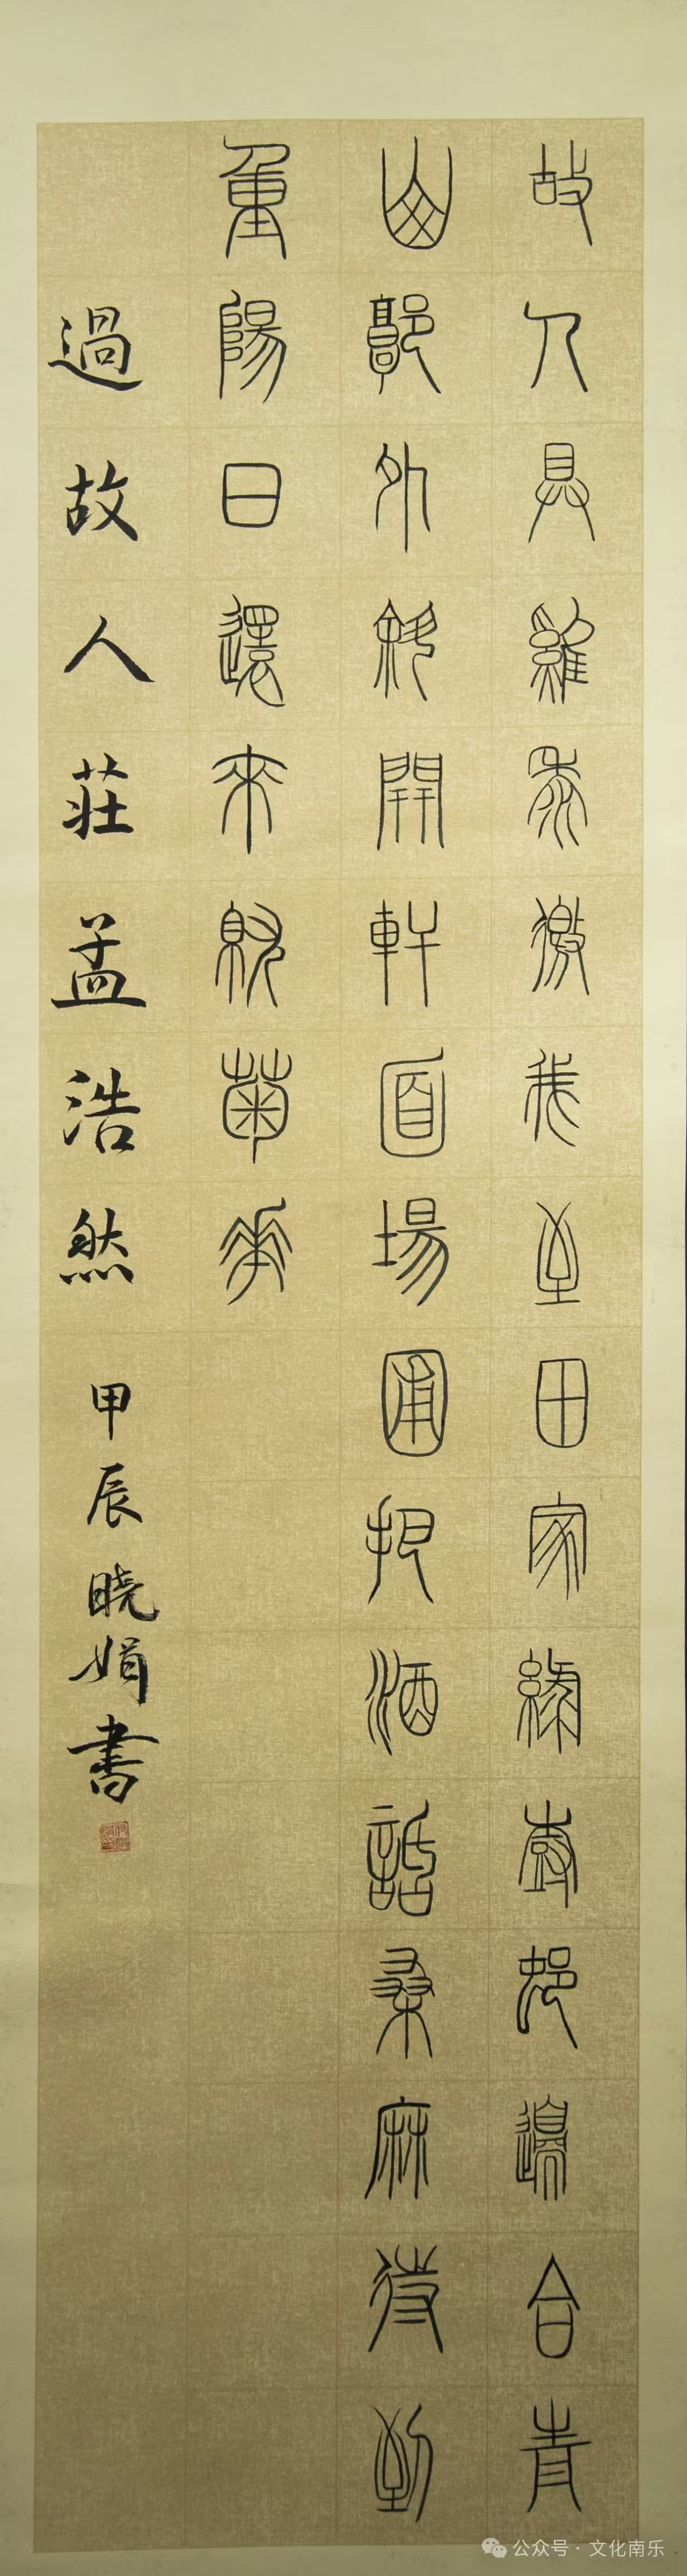 故人具雞黍邀我至田家綠樹邨邊合青
山郭外斜開軒面場圃把酒話桑麻待到
重陽日還來就菊華
過故人莊孟浩然 甲辰晓娟書
公众号·文化南乐